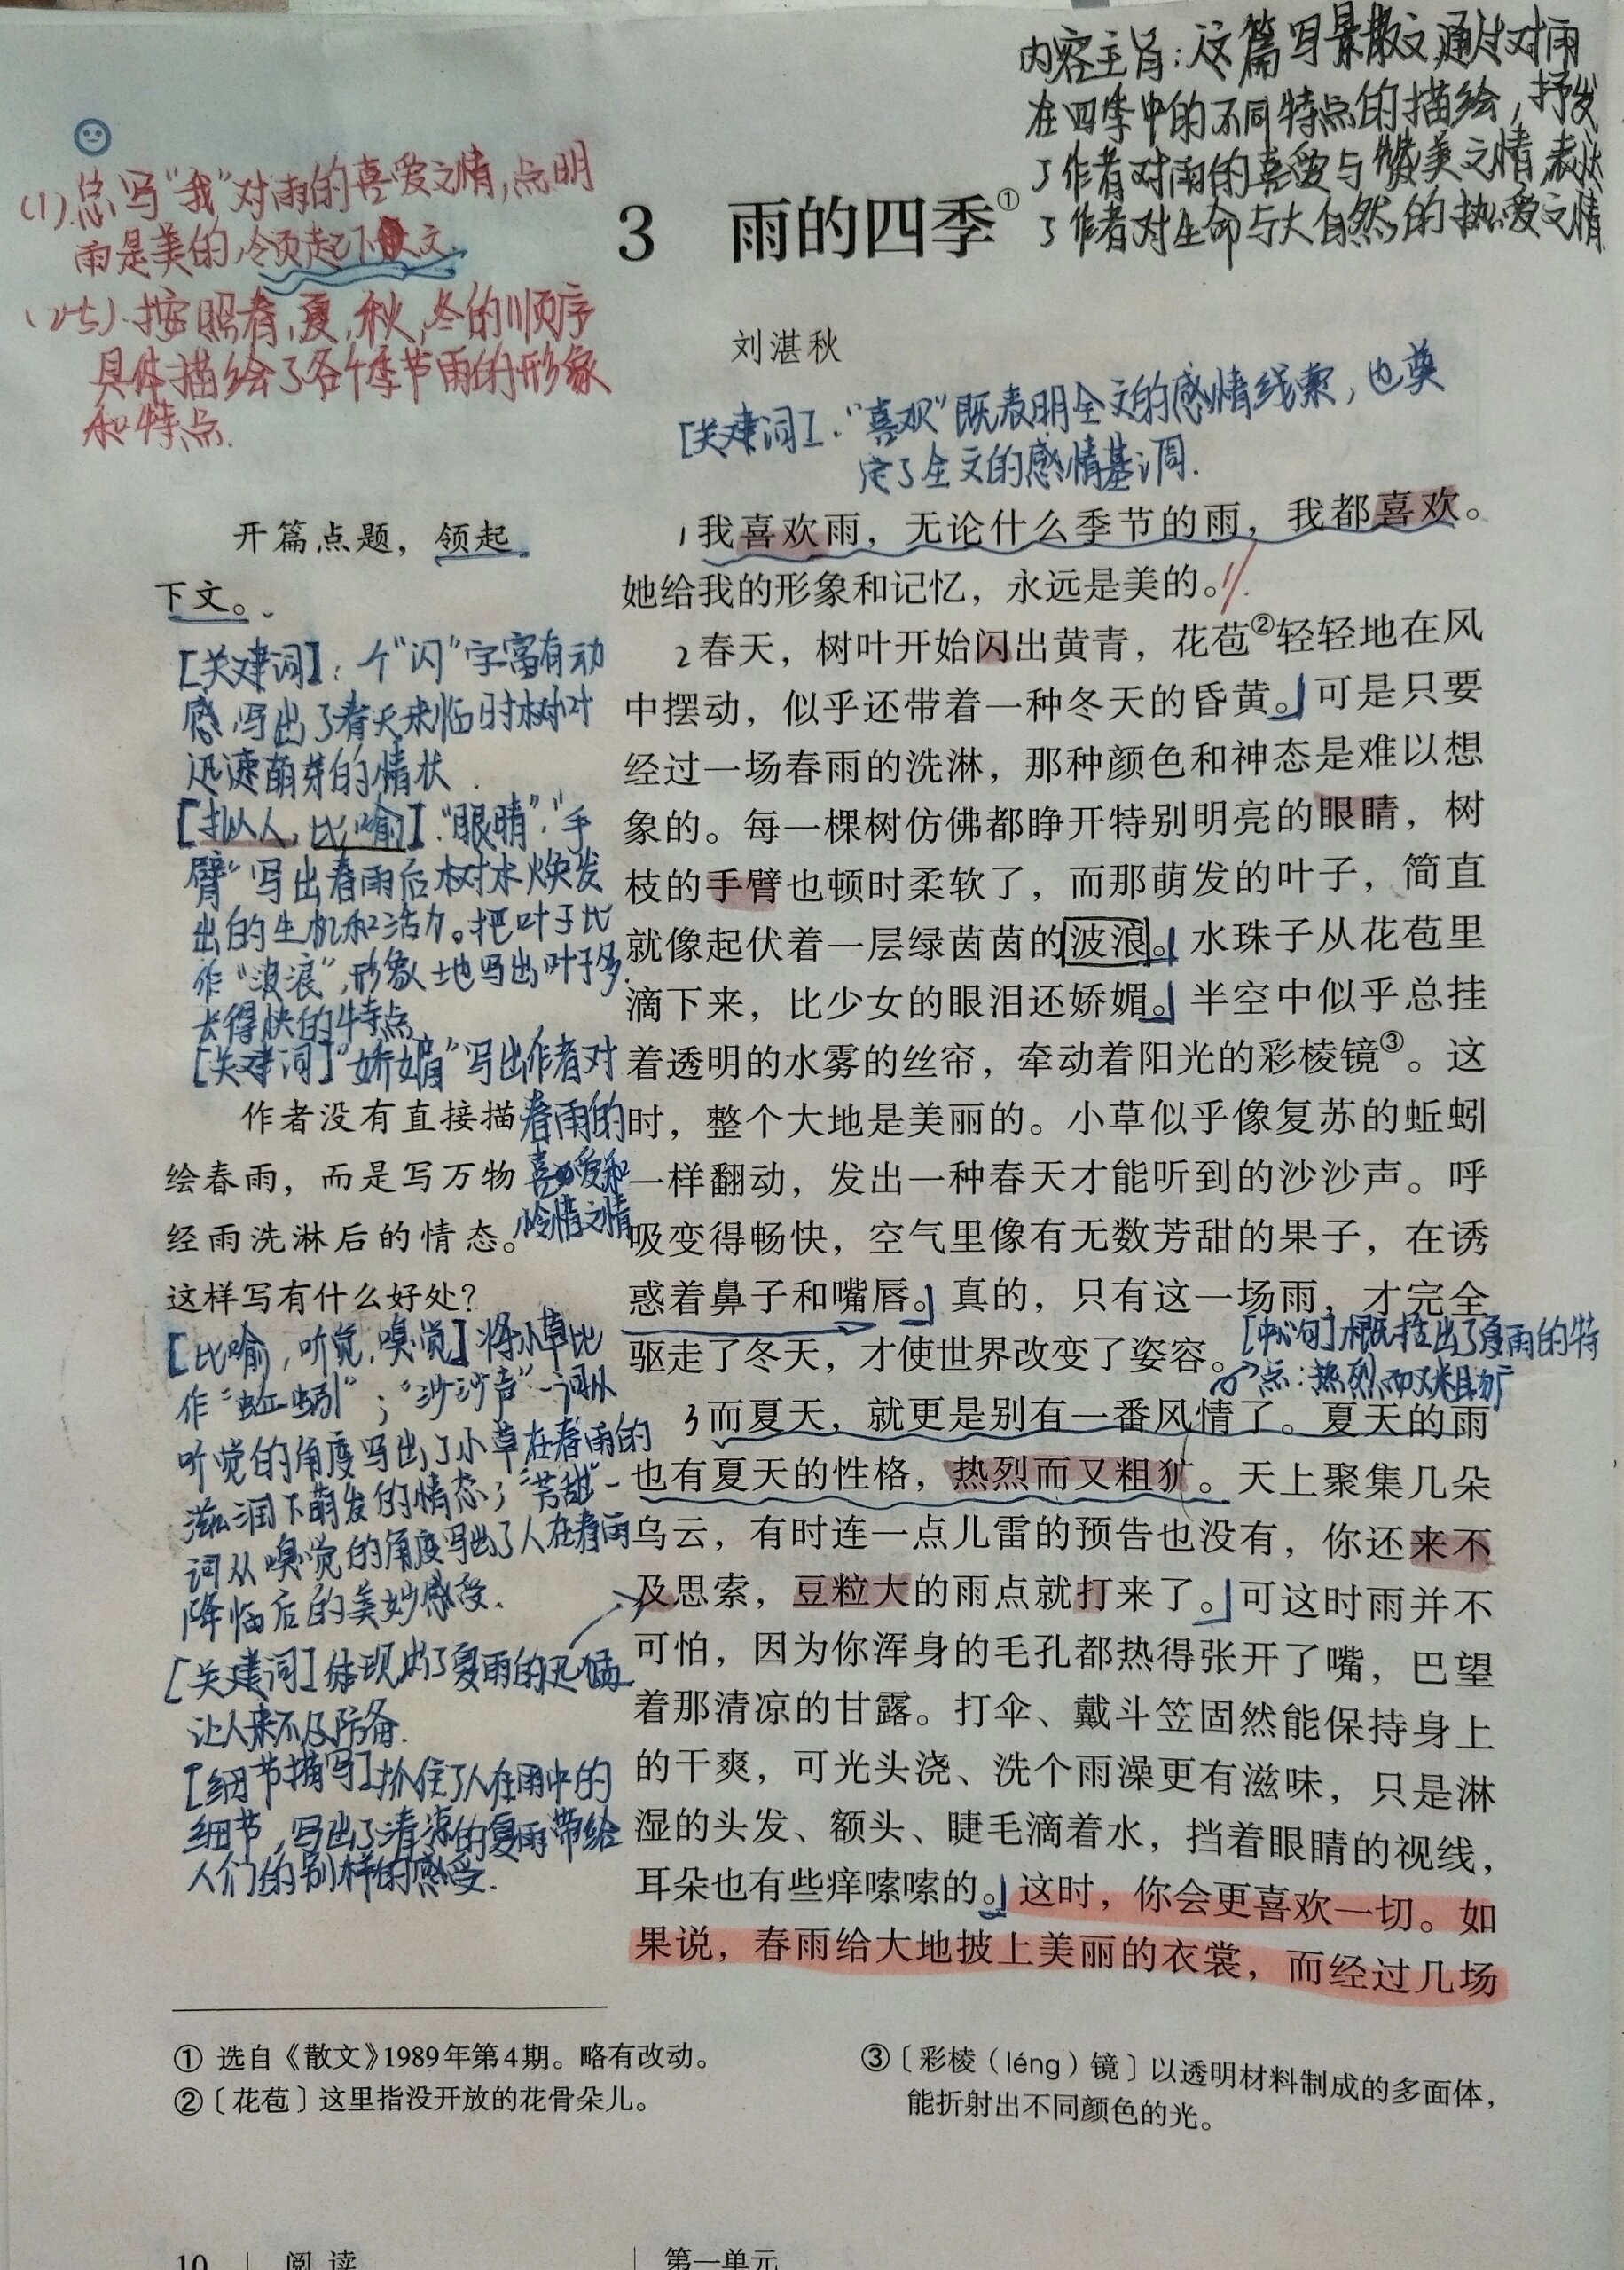 内容主旨：这篇写景散文,通过对雨
在四季中的不同特点的描绘,抒发
了作者对雨的喜爱与赞美之情,表达
了作者对生命与大自然的热爱之情.
(1).总写“我”对雨的喜爱之情,点明
雨是美的,领起下文.
(2-5).按照春,夏,秋,冬的顺序
具体描绘了各个季节雨的形象
和特点.
3 雨的四季①
刘湛秋
[关键词].“喜欢”既表明全文的感情线索,也奠
定了全文的感情基调.
开篇点题，领起
下文。
[关键词]:一个“闪”字富有动
感,写出了春天来临时树叶
迅速萌芽的情状.
[拟人,比喻].“眼睛”.“手
臂”写出春雨后树木焕发
出的生机和活力。把叶子比
作“波浪”,形象地写出叶子多.
长得快的特点
[关键词]“娇媚”写出作者对
春雨的
喜爱和
怜惜之情
作者没有直接描
绘春雨，而是写万物
经雨洗淋后的情态。
这样写有什么好处？
[比喻,听觉,嗅觉]将小草比
作“蚯蚓”;“沙沙声”一词从
听觉的角度写出了小草在春雨的
滋润下萌发的情态;“芳甜”一
词从嗅觉的角度写出了人在春雨
降临后的美妙感受.
[关键词]体现出了夏雨的迅猛
让人来不及防备.
[细节描写]抓住了人在雨中的
细节,写出了清凉的夏雨带给
人们的别样的感受.
1我喜欢雨，无论什么季节的雨，我都喜欢。
她给我的形象和记忆，永远是美的。
2春天，树叶开始闪出黄青，花苞②轻轻地在风
中摆动，似乎还带着一种冬天的昏黄。可是只要
经过一场春雨的洗淋，那种颜色和神态是难以想
象的。每一棵树仿佛都睁开特别明亮的眼睛，树
枝的手臂也顿时柔软了，而那萌发的叶子，简直
就像起伏着一层绿茵茵的波浪。水珠子从花苞里
滴下来，比少女的眼泪还娇媚。半空中似乎总挂
着透明的水雾的丝帘，牵动着阳光的彩棱镜③。这
时，整个大地是美丽的。小草似乎像复苏的蚯蚓
一样翻动，发出一种春天才能听到的沙沙声。呼
吸变得畅快，空气里像有无数芳甜的果子，在诱
惑着鼻子和嘴唇。真的，只有这一场雨，才完全
驱走了冬天，才使世界改变了姿容。
[中心句]概括出了夏雨的特
点:热烈而又粗犷
3而夏天，就更是别有一番风情了。夏天的雨
也有夏天的性格，热烈而又粗犷。天上聚集几朵
乌云，有时连一点儿雷的预告也没有，你还来不
及思索，豆粒大的雨点就打来了。可这时雨并不
可怕，因为你浑身的毛孔都热得张开了嘴，巴望
着那清凉的甘露。打伞、戴斗笠固然能保持身上
的干爽，可光头浇、洗个雨澡更有滋味，只是淋
湿的头发、额头、睫毛滴着水，挡着眼睛的视线，
耳朵也有些痒嗦嗦的。这时，你会更喜欢一切。如
果说，春雨给大地披上美丽的衣裳，而经过几场
① 选自《散文》1989年第4期。略有改动。
②〔花苞〕这里指没开放的花骨朵儿。
③〔彩棱（léng）镜〕以透明材料制成的多面体，
能折射出不同颜色的光。
10 | 阅读 | 第一单元